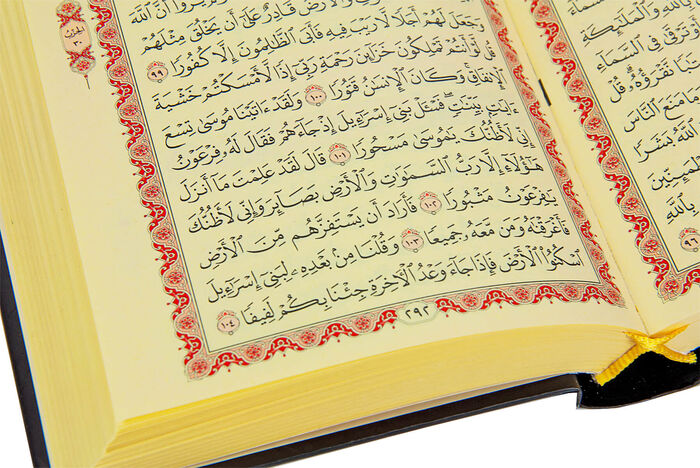 بِٱللَّهِ وَٱلْمَلَٰٓئِكَةِ
تَرْقَىٰ فِى ٱلسَّمَآءِ
نَّقْرَؤُهُۥ قُلْ
وَمَا مَنَعَ ٱلنَّاسَ
ٱللَّهُ بَشَرًا
بِٱللَّهِ
٩٦
يَرَوْا۟ أَنَّ ٱللَّهَ
وَٱلْأَرْضَ قَادِرٌ عَلَىٰٓ أَن يَخْلُقَ مِثْلَهُمْ
وَجَعَلَ لَهُمْ أَجَلًا لَّا رَيْبَ فِيهِ فَأَبَى ٱلظَّٰلِمُونَ إِلَّا كُفُورًا ٩٩
قُل لَّوْ أَنتُمْ تَمْلِكُونَ خَزَآئِنَ رَحْمَةِ رَبِّىٓ إِذًا لَّأَمْسَكْتُمْ خَشْيَةَ
ٱلْإِنفَاقِ وَكَانَ ٱلْإِنسَٰنُ قَتُورًا ١٠٠ وَلَقَدْ ءَاتَيْنَا مُوسَىٰ تِسْعَ
ءَايَٰتٍۭ بَيِّنَٰتٍ فَسْـَٔلْ بَنِىٓ إِسْرَٰٓءِيلَ إِذْ جَآءَهُمْ فَقَالَ لَهُۥ فِرْعَوْنُ
إِنِّى لَأَظُنُّكَ يَٰمُوسَىٰ مَسْحُورًا ١٠١ قَالَ لَقَدْ عَلِمْتَ مَآ أَنزَلَ
هَٰٓؤُلَآءِ إِلَّا رَبُّ ٱلسَّمَٰوَٰتِ وَٱلْأَرْضِ بَصَآئِرَ وَإِنِّى لَأَظُنُّكَ
يَٰفِرْعَوْنُ مَثْبُورًا ١٠٢ فَأَرَادَ أَن يَسْتَفِزَّهُم مِّنَ ٱلْأَرْضِ
فَأَغْرَقْنَٰهُ وَمَن مَّعَهُۥ جَمِيعًا ١٠٣ وَقُلْنَا مِنۢ بَعْدِهِۦ لِبَنِىٓ إِسْرَٰٓءِيلَ
ٱسْكُنُوا۟ ٱلْأَرْضَ فَإِذَا جَآءَ وَعْدُ ٱلْءَاخِرَةِ جِئْنَا بِكُمْ لَفِيفًا ١٠٤
٢٩٢
الحزب
٣٠